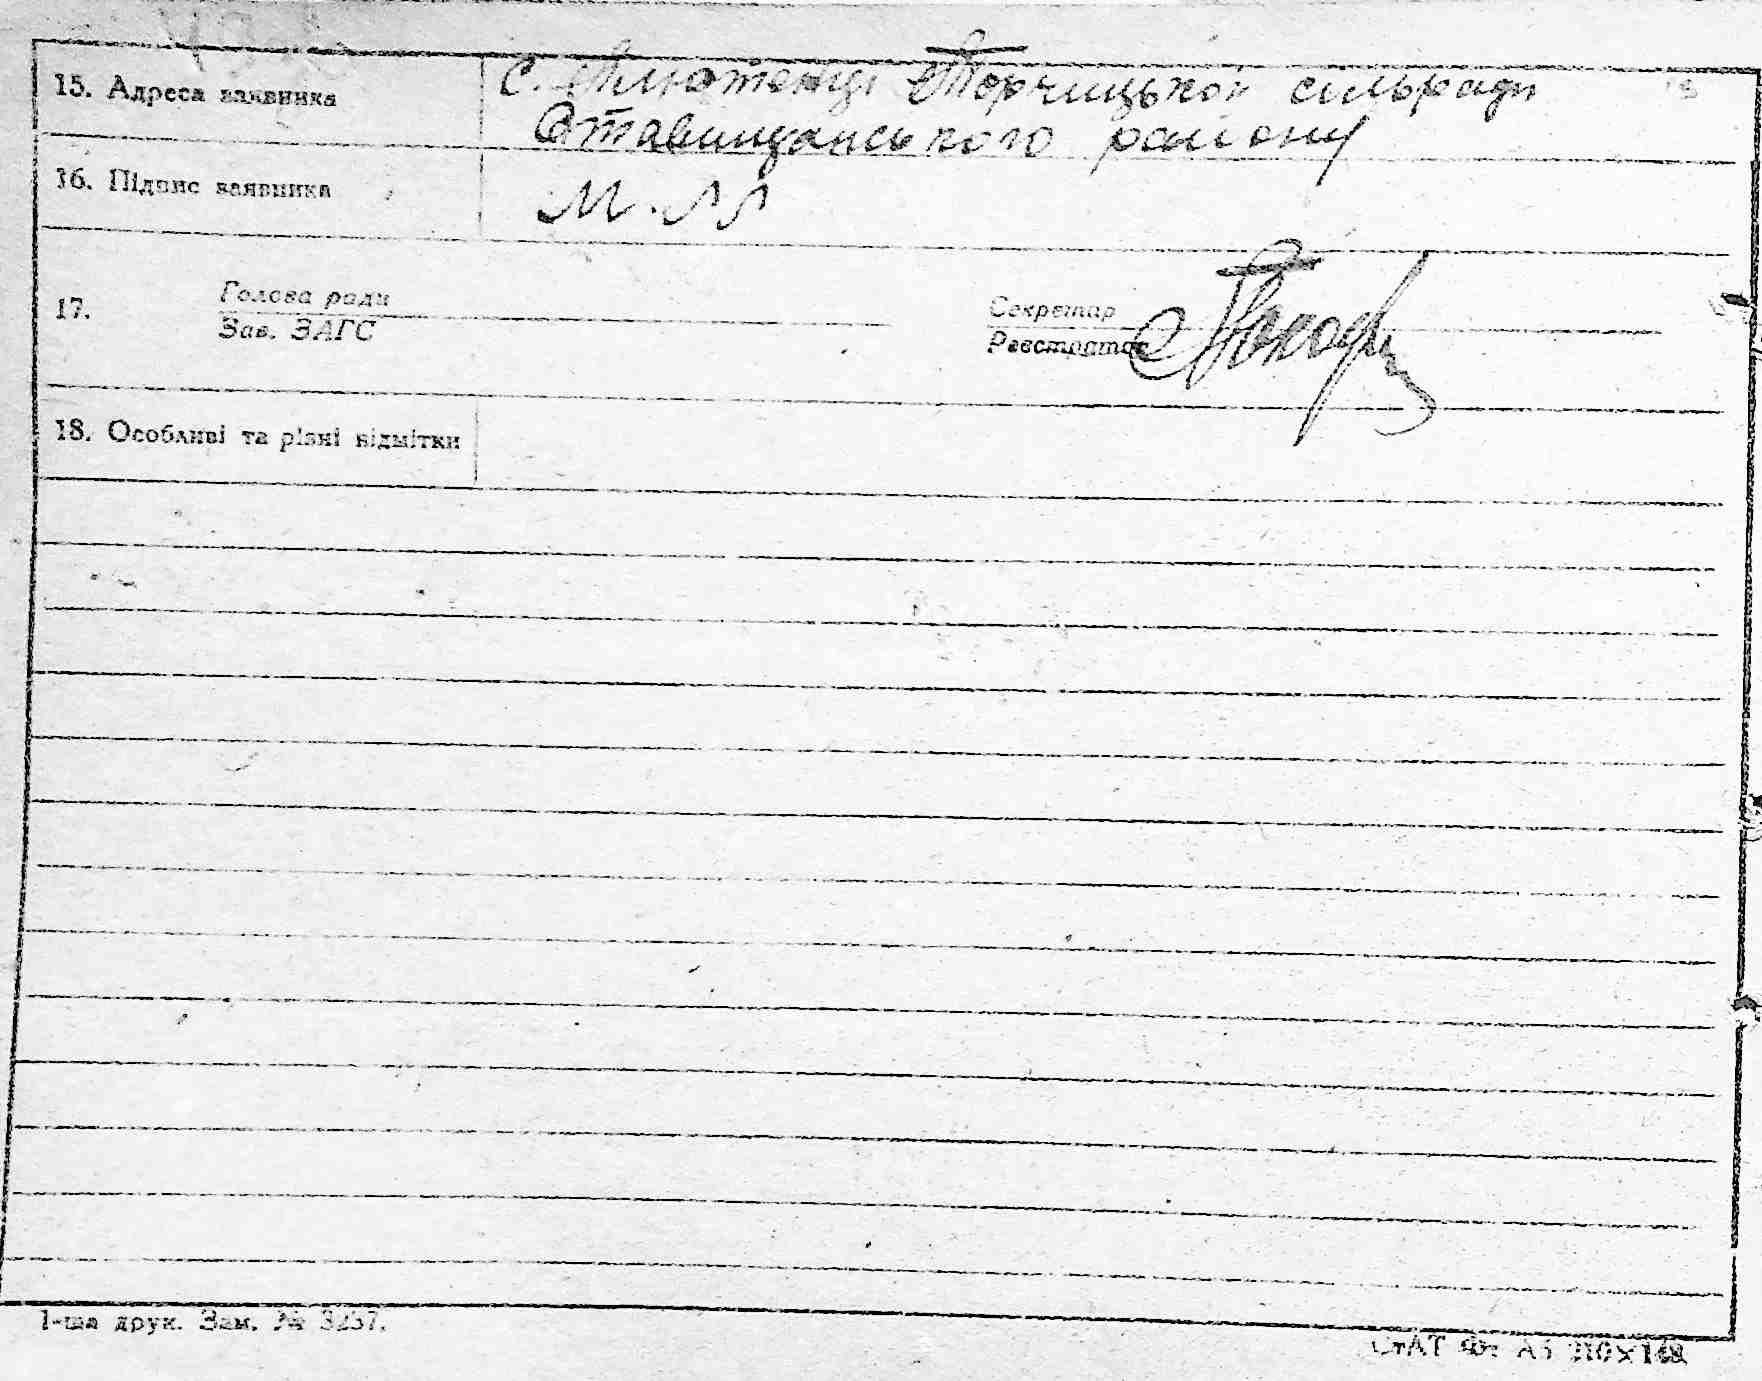 15. Адреса заявника
с. Торчицької сільради
Ставищанського району
16. Підпис заявника
17.
Голова ради
Зав. ЗАГС
Секретар
Реєстратор
18. Особливі та різні відмітки
1-ша друк. Зам. № 3237.
СтАТ Фт А5 210×148